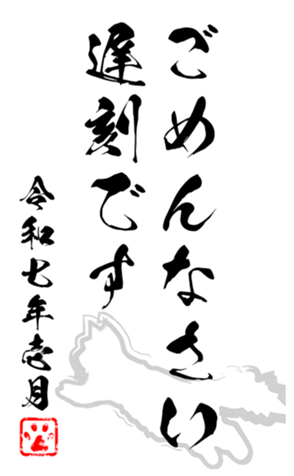 ごめんなさい
遅刻です
令和七年壱月